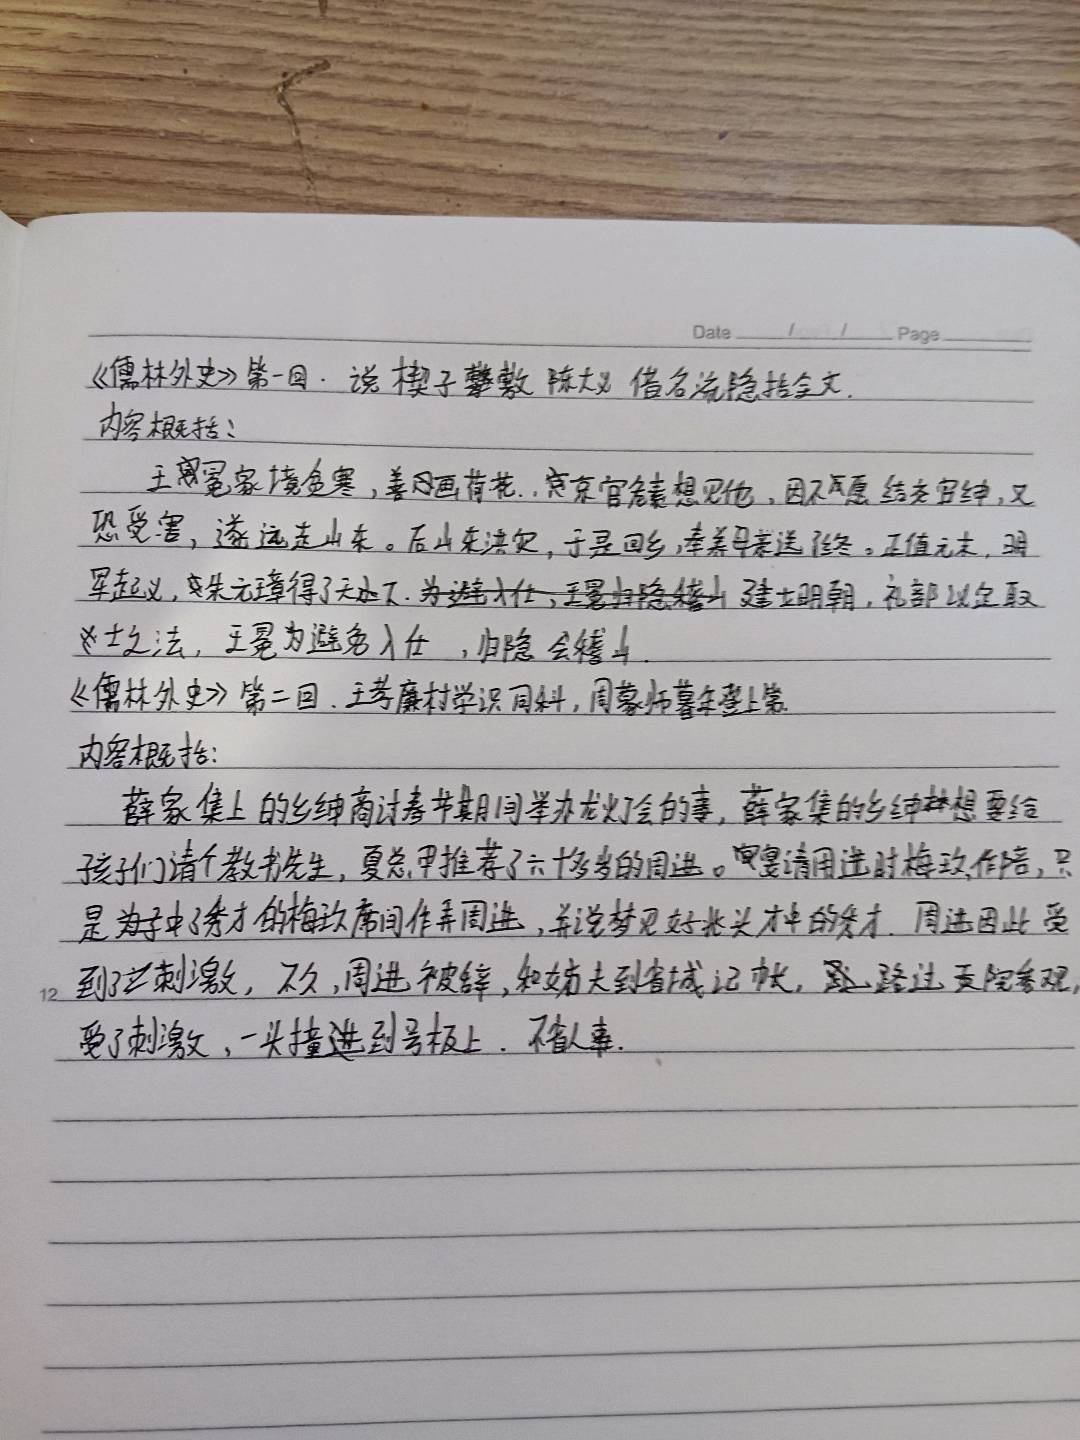 Date / / Page
《儒林外史》第一回. 说楔子敷陈大义 借名流隐括全文.
内容概括:
王冕家境贫寒,善画荷花. 京官危素想见他,因不愿结交官绅,又
恐受害,遂远走山东。后山东洪灾,于是回乡,奉养母亲送终。正值元末,明
军起义,朱元璋得了天下.为避入仕,王冕归隐稽山 建立明朝,礼部议定取
士之法,王冕为避免入仕,归隐会稽山.
《儒林外史》第二回. 王孝廉村学识同科,周蒙师暮年登上第.
内容概括:
薛家集上的乡绅商讨春节期间举办龙灯会的事,薛家集的乡绅想要给
孩子们请个教书先生,夏总甲推荐了六十多岁的周进。宴请周进时梅玖作陪,只
是中了秀才的梅玖席间作弄周进,并说梦见好兆头才中的秀才. 周进因此受
到了刺激,不久,周进被辞,和姊夫到省城记帐, 路过贡院参观,
12
受了刺激,一头撞进到号板上. 不省人事.